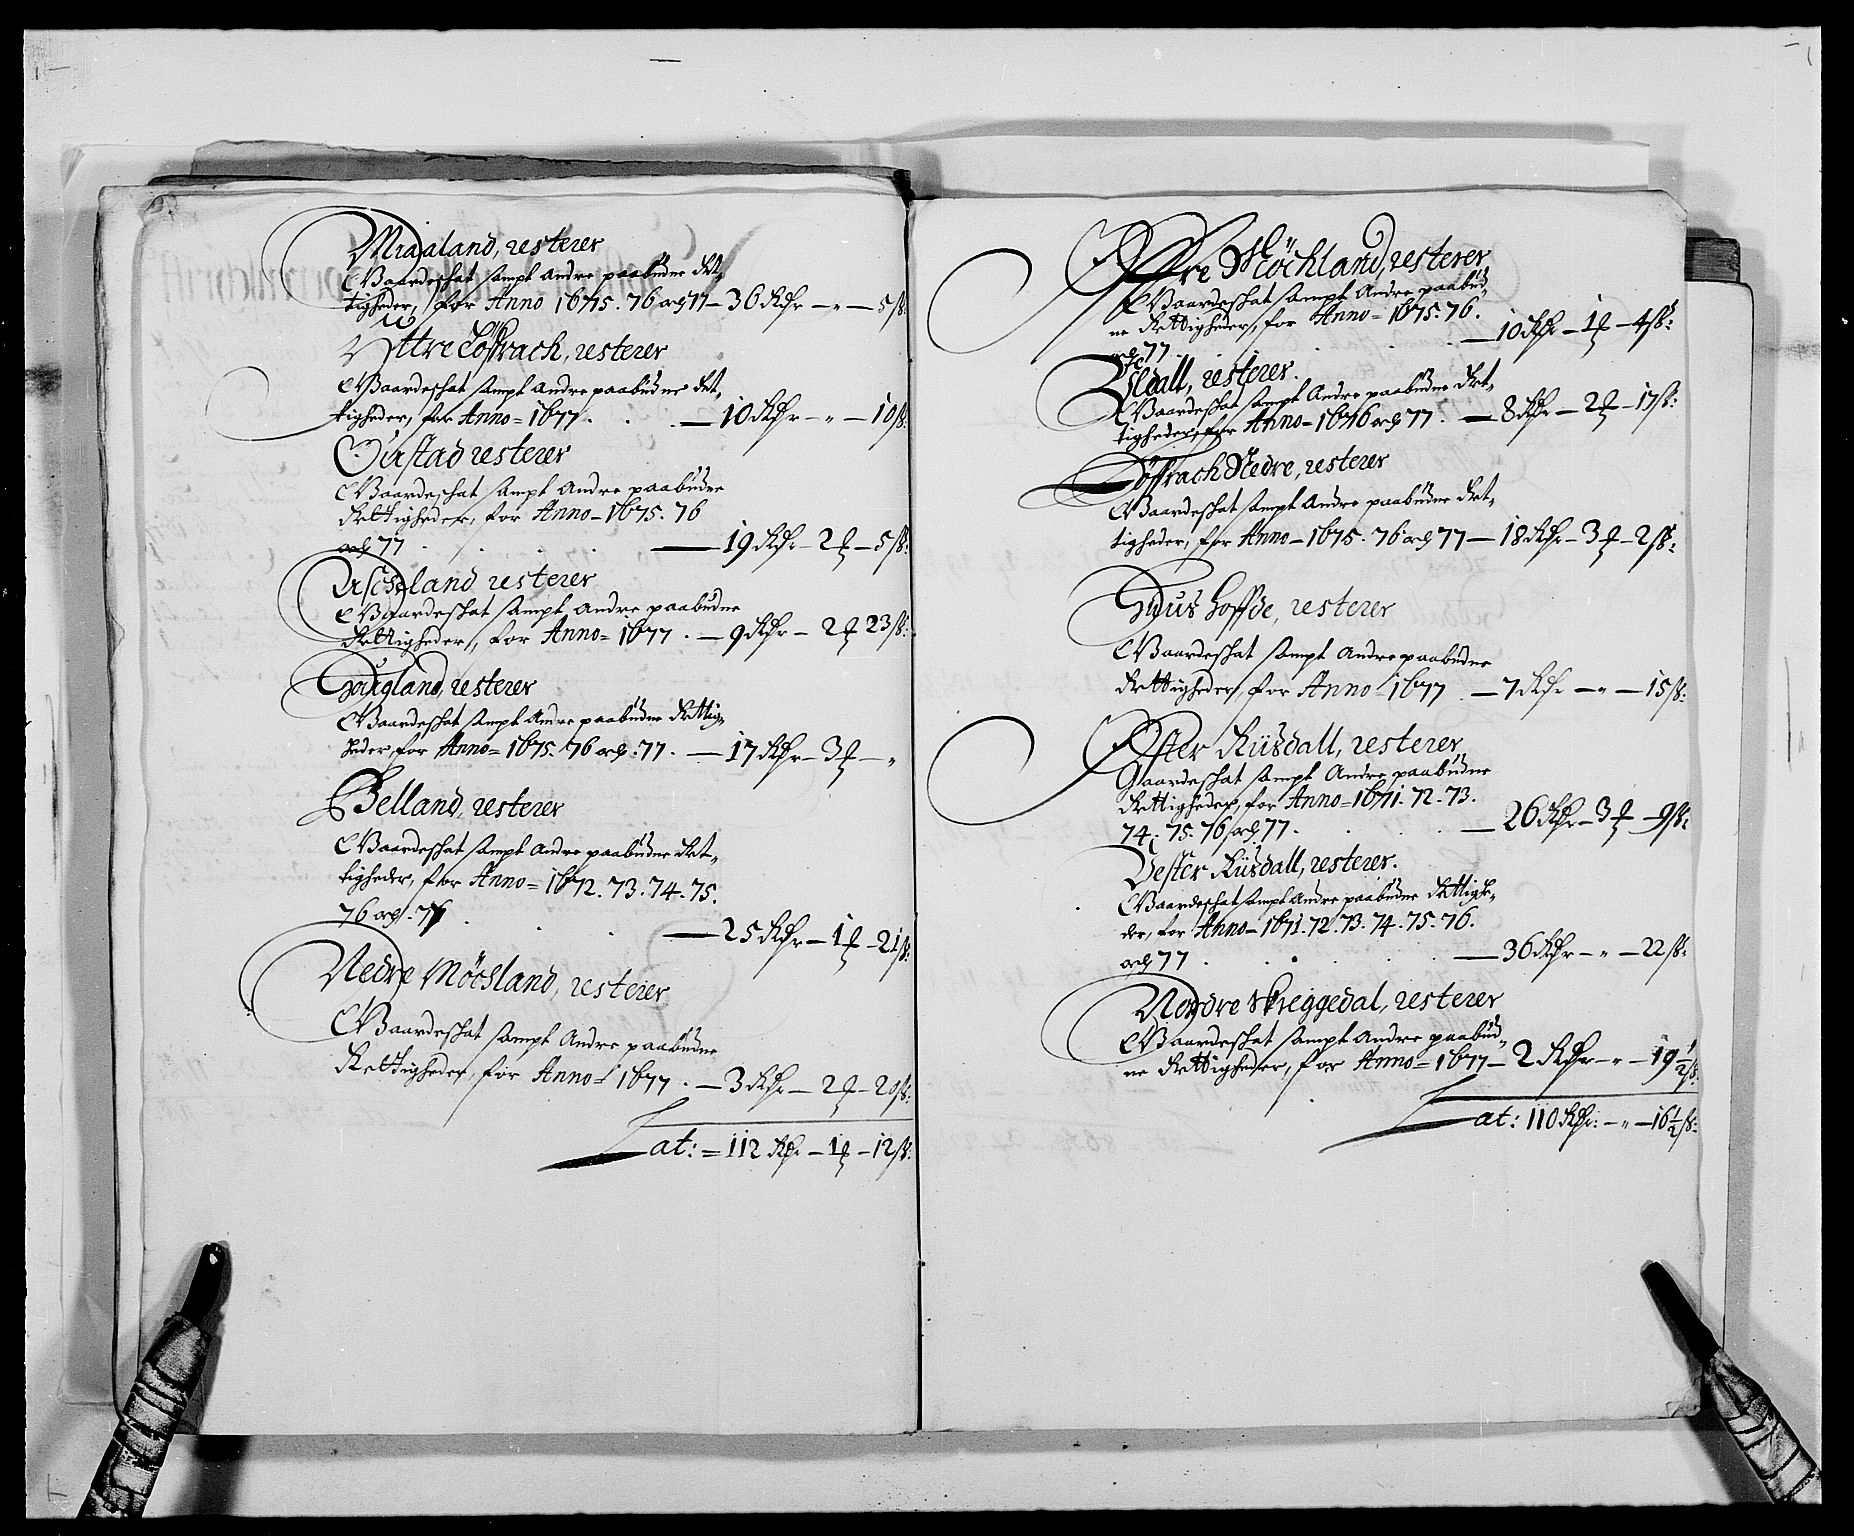 Miaaland, resterer
Gaardeshat sampt Andre paabudne Ret,
tigheder, for Anno 1675. 76 och 77 – 36 Rdr – „ – 5 ß.
Yttre Løffrach, resterer
Gaardeshat sampt Andre paabudne Ret,
tigheder, for Anno = 1677 . . . — 10 Rdr – „ – 10 ß.
resterer
Gaardeshat sampt Andre paabudne
Rettigheder, for Anno – 1675. 76
och 77 . . . . — 19 Rdr – 2 ꝑ – 5 ß:
resterer
Gaardeshat sampt Andre paabudne
Rettigheder, for Anno = 1677 . — 9 Rdr – 2 ꝑ 23 ß:
Haugland, resterer
Gaardeshat sampt Andre paabudne Rettig,
heder, for Anno = 1675. 76 och . 77 . — 17 Rdr – 3 ꝑ – „
Belland, resterer
Gaardeshat sampt Andre paabudne Ret,
tigheder, for Anno = 1672. 73. 74. 75.
76 och . 77 . . . — 25 Rdr – 1 ꝑ – 21 ß:
Nedre Möchland, resterer
Gaardeshat sampt Andre paabudne
Rettigheder, for Anno = 1677 . — 3 Rdr – 2 ꝑ – 20 ß:
Lat: = 112 Rdr – 1 ꝑ – 12 ß:
Öffre Möchland, resterer
Gaardeshat sampt Andre paabud,
ne Rettigheder, for Anno = 1675. 76.
och 77 . . . — 10 Rdr – 1 ꝑ – 4 ß:
resterer.
Gaardeshat sampt Andre paabudne Ret,
tigheder, for Anno – 1676 och 77 . — 8 Rdr – 2 ꝑ – 17 ß:
Løffrach Nedre, resterer
Gaardeshat sampt Andre paabudne Ret,
tigheder, for Anno – 1675. 76 och 77 — 18 Rdr – 3 ꝑ – 2 ß:
resterer
Gaardeshat sampt Andre paabudne
Rettigheder, for Anno 1677 . — 7 Rdr – „ – 15 ß:
Øster Riisdall, resterer
Gaardeshat sampt Andre paabudne
Rettigheder, for Anno = 1671. 72. 73.
74. 75. 76 och 77. . . — 26 Rdr – 3 ꝑ – 9 ß:
Vester Riisdall, resterer.
Gaardeshat sampt Andre paabudne Rettighe,
der, for Anno – 1671. 72. 73. 74. 75. 76.
och 77 . . . . — 36 Rdr – „ – 22 ß:
Nordre Skreggedal, resterer
Gaardeshat sampt Andre paabud,
ne Rettigheder, for Anno = 1677 – 2 Rdr – „ – 19 1/2 ß:
Lat: 110 Rdr: – „ – 16 1/2 ß: